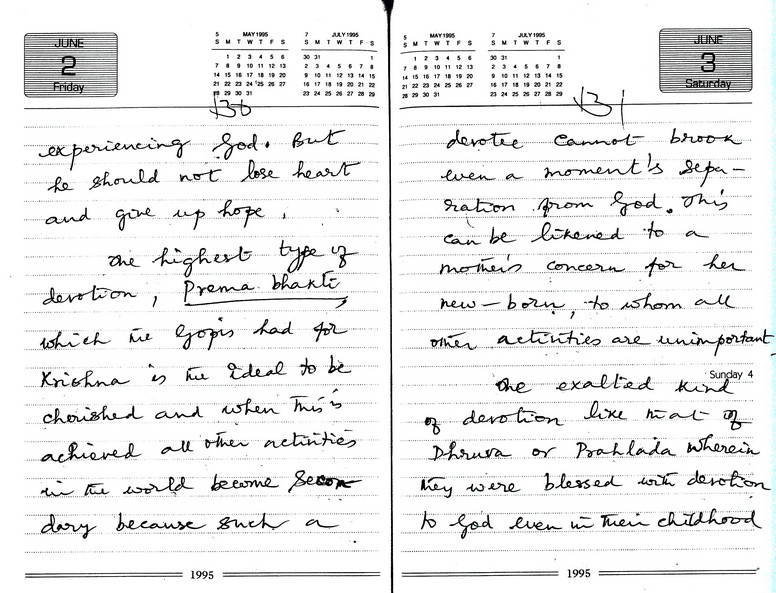 JUNE
2
Friday
5 MAY 1995
S M T W T F S
1 2 3 4 5 6
7 8 9 10 11 12 13
14 15 16 17 18 19 20
21 22 23 24 25 26 27
28 29 30 31
7 JULY 1995
S M T W T F S
30 31 1
2 3 4 5 6 7 8
9 10 11 12 13 14 15
16 17 18 19 20 21 22
23 24 25 26 27 28 29
130
experiencing God. But
he should not lose heart
and give up hope.
The highest type of
devotion, Prema bhakti,
which the Gopis had for
Krishna is the ideal to be
cherished and when this is
achieved all other activities
in the world become secon
dary because such a
1995
5 MAY 1995
S M T W T F S
1 2 3 4 5 6
7 8 9 10 11 12 13
14 15 16 17 18 19 20
21 22 23 24 25 26 27
28 29 30 31
7 JULY 1995
S M T W T F S
30 31 1
2 3 4 5 6 7 8
9 10 11 12 13 14 15
16 17 18 19 20 21 22
23 24 25 26 27 28 29
JUNE
3
Saturday
131
devotee cannot brook
even a moment's sepa-
ration from God. This
can be likened to a
mother's concern for her
new-born, to whom all
other activities are unimportant.
Sunday 4
The exalted kind
of devotion like that of
Dhruva or Prahlada wherein
they were blessed with devotion
to God even in their childhood
1995